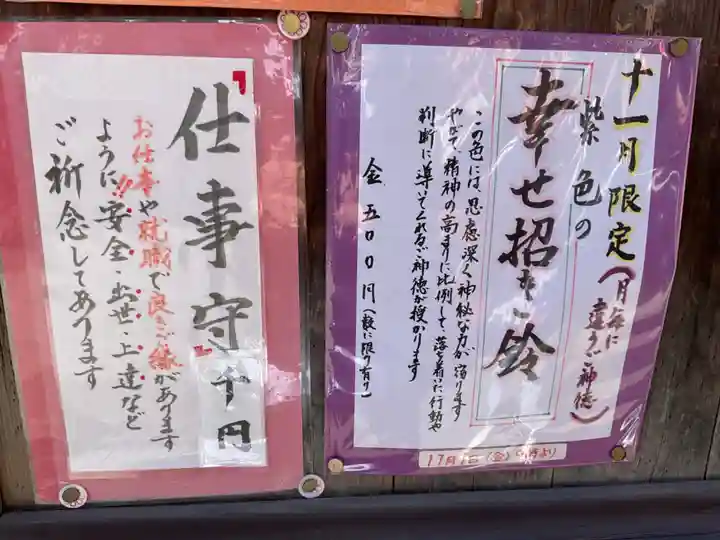 十一月限定(月毎に違うご神徳)
紫色の
幸せ招き鈴
この色には、思慮深く神秘な力が宿ります
やがて、精神の高まりに比例して、落ち着いた行動や
判断に導いてくれるご神徳が授かります
金 五〇〇円(数に限り有り)
11月1日(金)9時より
『仕事守』千円
お仕事や就職で良きご縁があります
ように!!安全・出世・上達など
ご祈念してあります